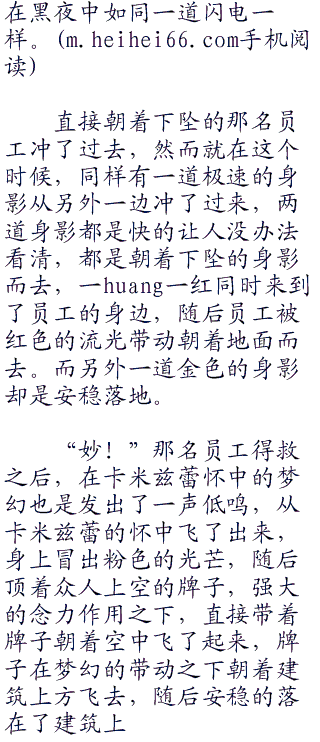 在黑夜中如同一道闪电一
样。(m.heihei66.com手机阅
读)
直接朝着下坠的那名员
工冲了过去，然而就在这个
时候，同样有一道极速的身
影从另外一边冲了过来，两
道身影都是快的让人没办法
看清，都是朝着下坠的身影
而去，一huang一红同时来到
了员工的身边，随后员工被
红色的流光带动朝着地面而
去。而另外一道金色的身影
却是安稳落地。
“妙！”那名员工得救
之后，在卡米兹蕾怀中的梦
幻也是发出了一声低鸣，从
卡米兹蕾的怀中飞了出来，
身上冒出粉色的光芒，随后
顶着众人上空的牌子，强大
的念力作用之下，直接带着
牌子朝着空中飞了起来，牌
子在梦幻的带动之下朝着建
筑上方飞去，随后安稳的落
在了建筑上